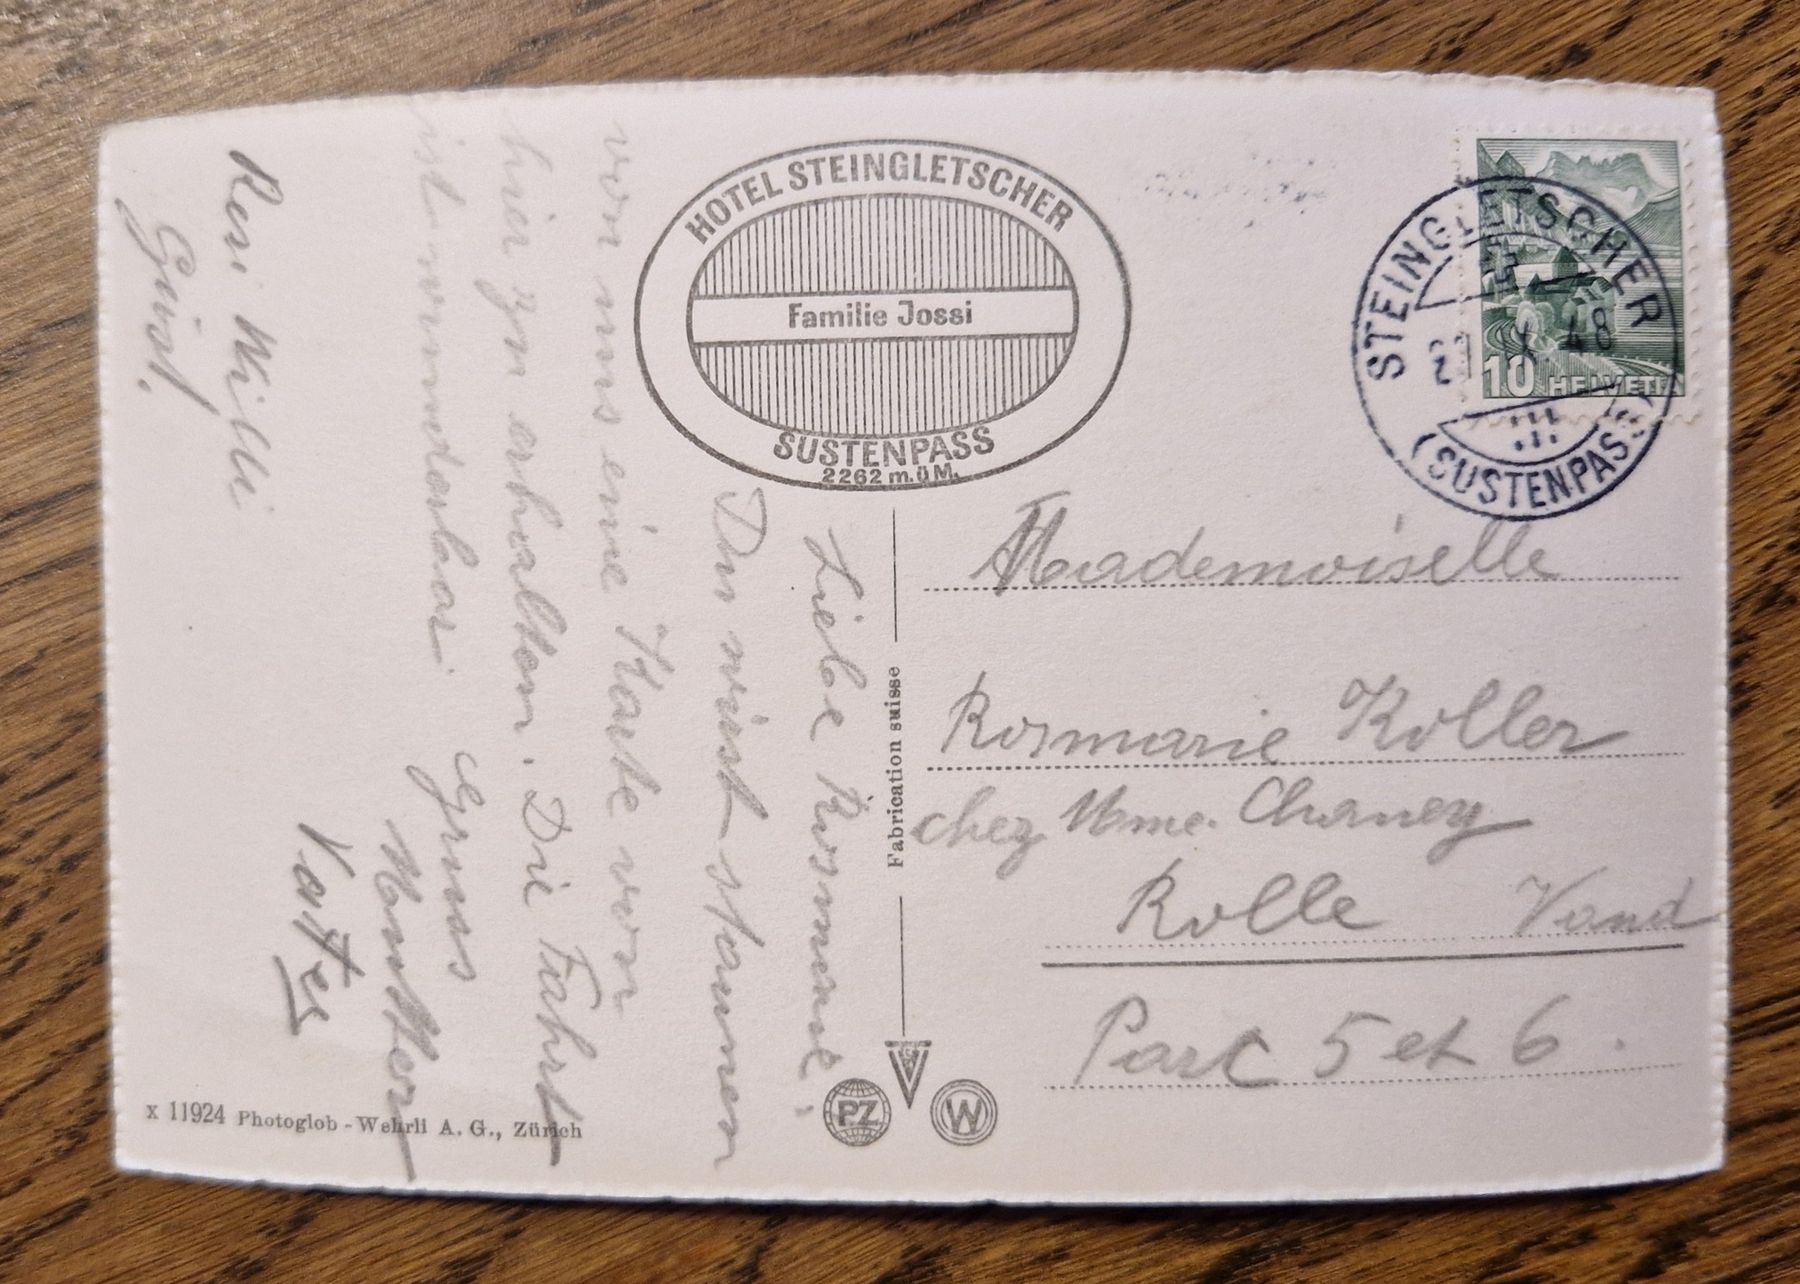 HOTEL STEINGLETSCHER
Familie Jossi
SUSTENPASS
2262 m.ü.M.
STEINGLETSCHER
48
(SUSTENPASS)
10 HELVETIA
Liebe Rosmarie!
Du wirst staunen
von uns eine Karte von
hier zu erhalten. Die Fahrt
ist wunderbar. Gruss
Mutter
Vatter
Resi Willi
Gusti.
Mademoiselle
Rosmarie Koller
chez Mme. Chaney
Rolle Vaud
Parc 5 et 6.
Fabrication suisse
PZ
W
x 11924 Photoglob - Wehrli A. G., Zürich